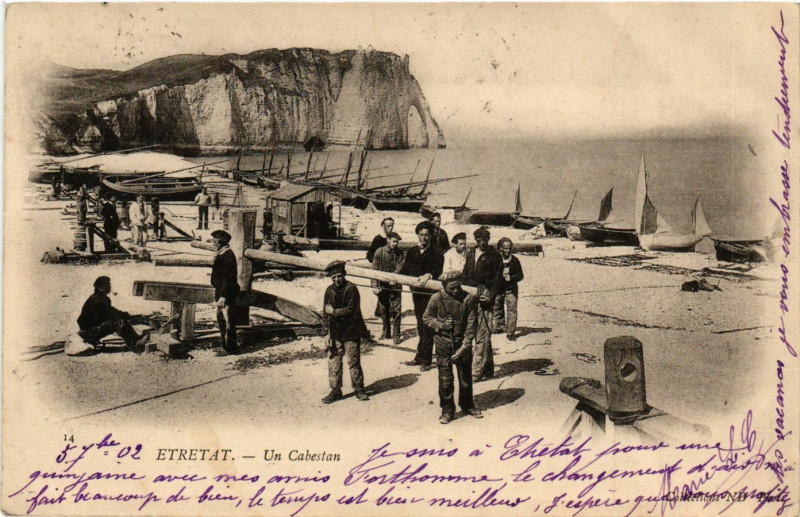 14
5 7bre 02 ETRETAT. — Un Cabestan
Je suis à Etretat pour une
quinzaine avec mes amis Forthomme, le changement d'air
fait beaucoup de bien, le temps est bien meilleur, J'espère que
vos vacances je vous embrasse tendrement
Marie
Collections ND Phot